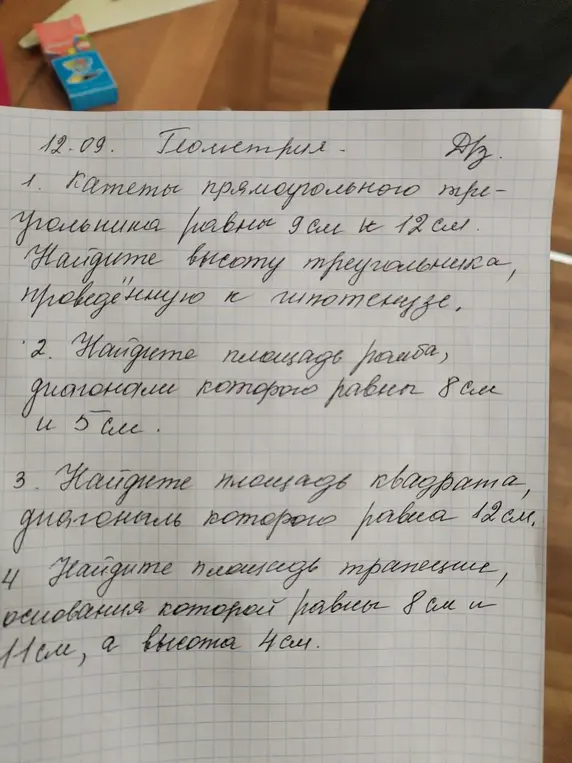 12.09. Геометрия. ДЗ.
1. Катеты прямоугольного тре-
угольника равны 9 см и 12 см.
Найдите высоту треугольника,
проведённую к гипотенузе.
2. Найдите площадь ромба,
диагонали которого равны 8 см
и 5 см.
3. Найдите площадь квадрата,
диагональ которого равна 12 см.
4 Найдите площадь трапеции,
основания которой равны 8 см и
11 см, а высота 4 см.